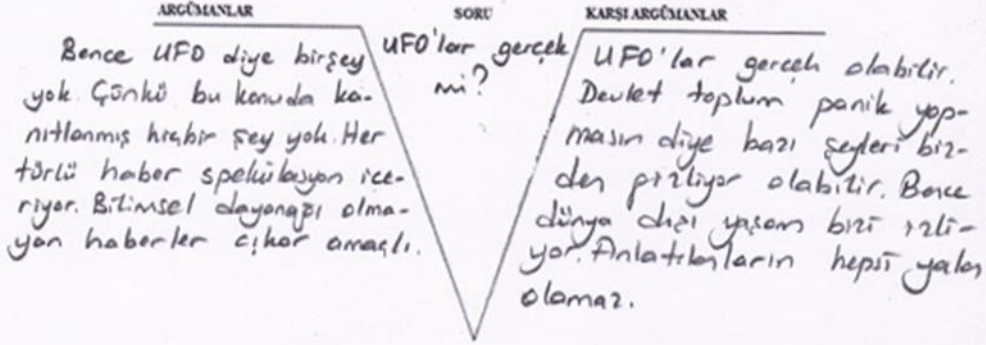 ARGÜMANLAR
Bence UFO diye birşey
yok. Çünkü bu konuda ka-
nıtlanmış hiçbir şey yok. Her
türlü haber spekülasyon içe-
riyor. Bilimsel dayanağı olma-
yan haberler çıkar amaçlı.
SORU
UFO'lar gerçek
mi?
KARŞI ARGÜMANLAR
UFO'lar gerçek olabilir.
Devlet toplum panik yap-
masın diye bazı şeyleri biz-
den gizliyor olabilir. Bence
dünya dışı yaşam bizi izli-
yor. Anlatılanların hepsi yalan
olamaz.